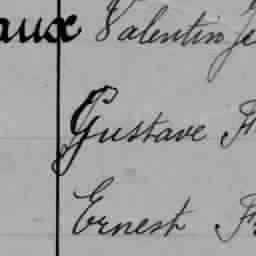 aux Valentin Je
Gustave F
Ernest Fr